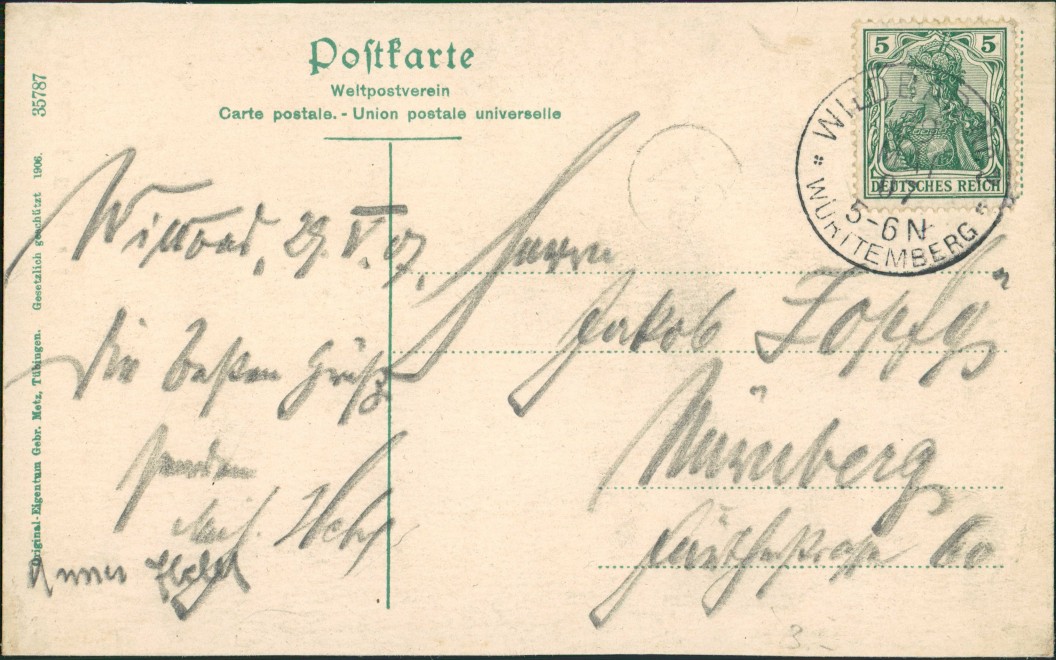 Postkarte
Weltpostverein
Carte postale. - Union postale universelle
35787
Original-Eigentum Gebr. Metz, Tübingen. Gesetzlich geschützt 1906.
5 5
DEUTSCHES REICH
WILDB
5-6 N
WÜRTTEMBERG
Wildbad, 29. V. 07.
Die besten Grüße
senden
Anna
Herrn
Jakob Zopfy
Nürnberg
Fürtherstrasse 60
3.-